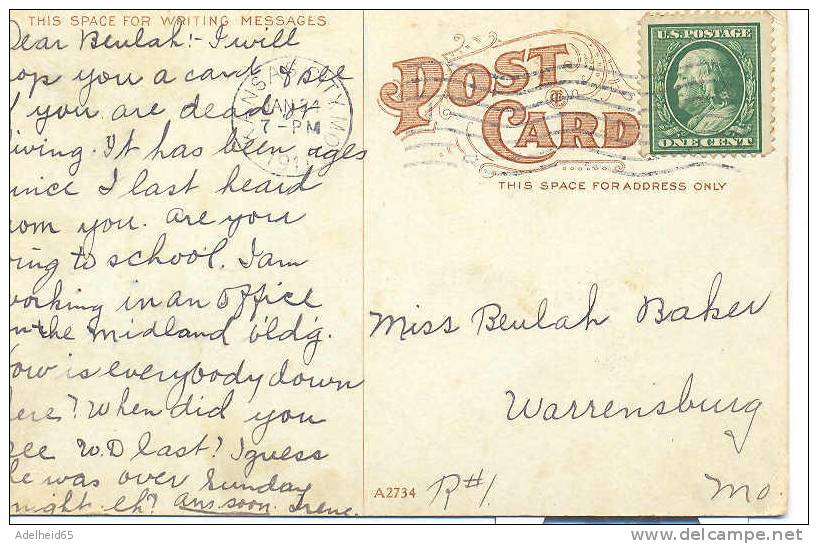 THIS SPACE FOR WRITING MESSAGES
Dear Beulah:- I will
op you a card & see
you are dead or
living. It has been ages
since I last heard
rom you. are you
ing to school. I am
working in an office
n the midland bldg.
How is everybody down
here? When did you
see W.D last? I guess
he was over Sunday
night eh? Ans. soon. Irene.
POST
CARD
THIS SPACE FOR ADDRESS ONLY
U.S. POSTAGE
ONE CENT
KANSAS CITY, MO.
JAN 14
7 - PM
Miss Beulah Baker
Warrensburg
R#1.
Mo.
A2734
Adelheid65
delcampe.net